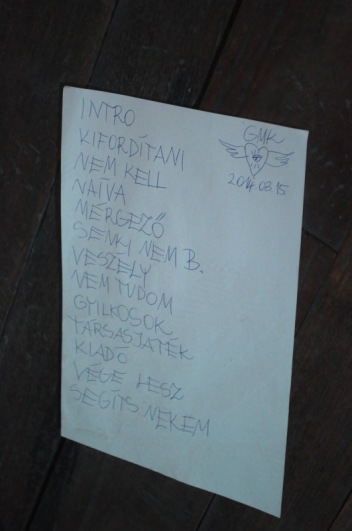 INTRO
KIFORDÍTANI
NEM KELL
NAÍVA
MÉRGEZŐ
SENKI NEM B.
VESZÉLY
NEM TUDOM
GYILKOSOK
TÁRSASJÁTÉK
KIADÓ
VÉGE LESZ
SEGÍTS NEKEM
GMK
2014.03.15